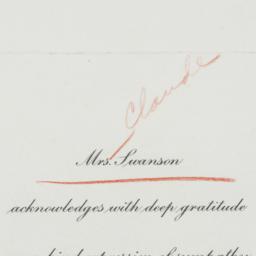 Claude
Mrs. Swanson
acknowledges with deep gratitude